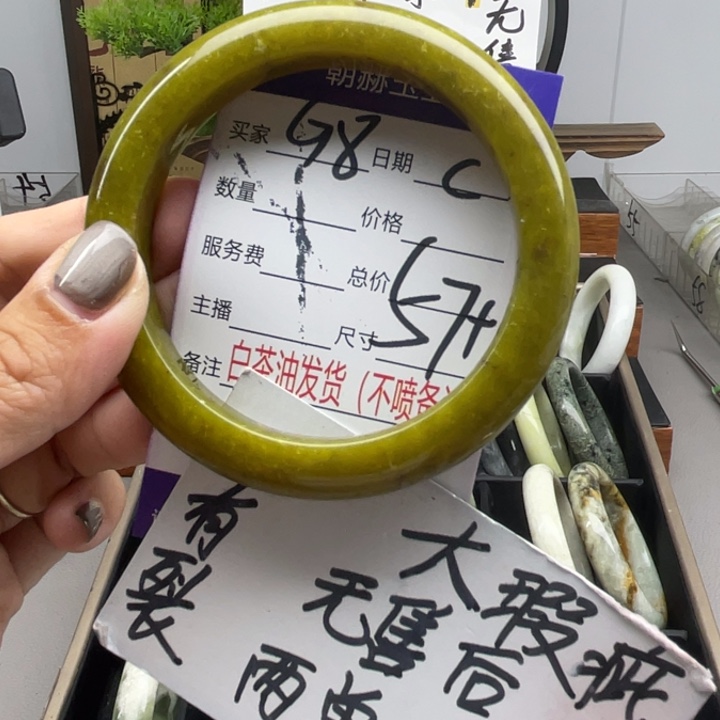 无
朝赫玉
买家 G8 日期 C
数量 价格
服务费 总价
主播 尺寸 57+
备注 白茶油发货（不喷备
有裂
无售后
大瑕疵
54